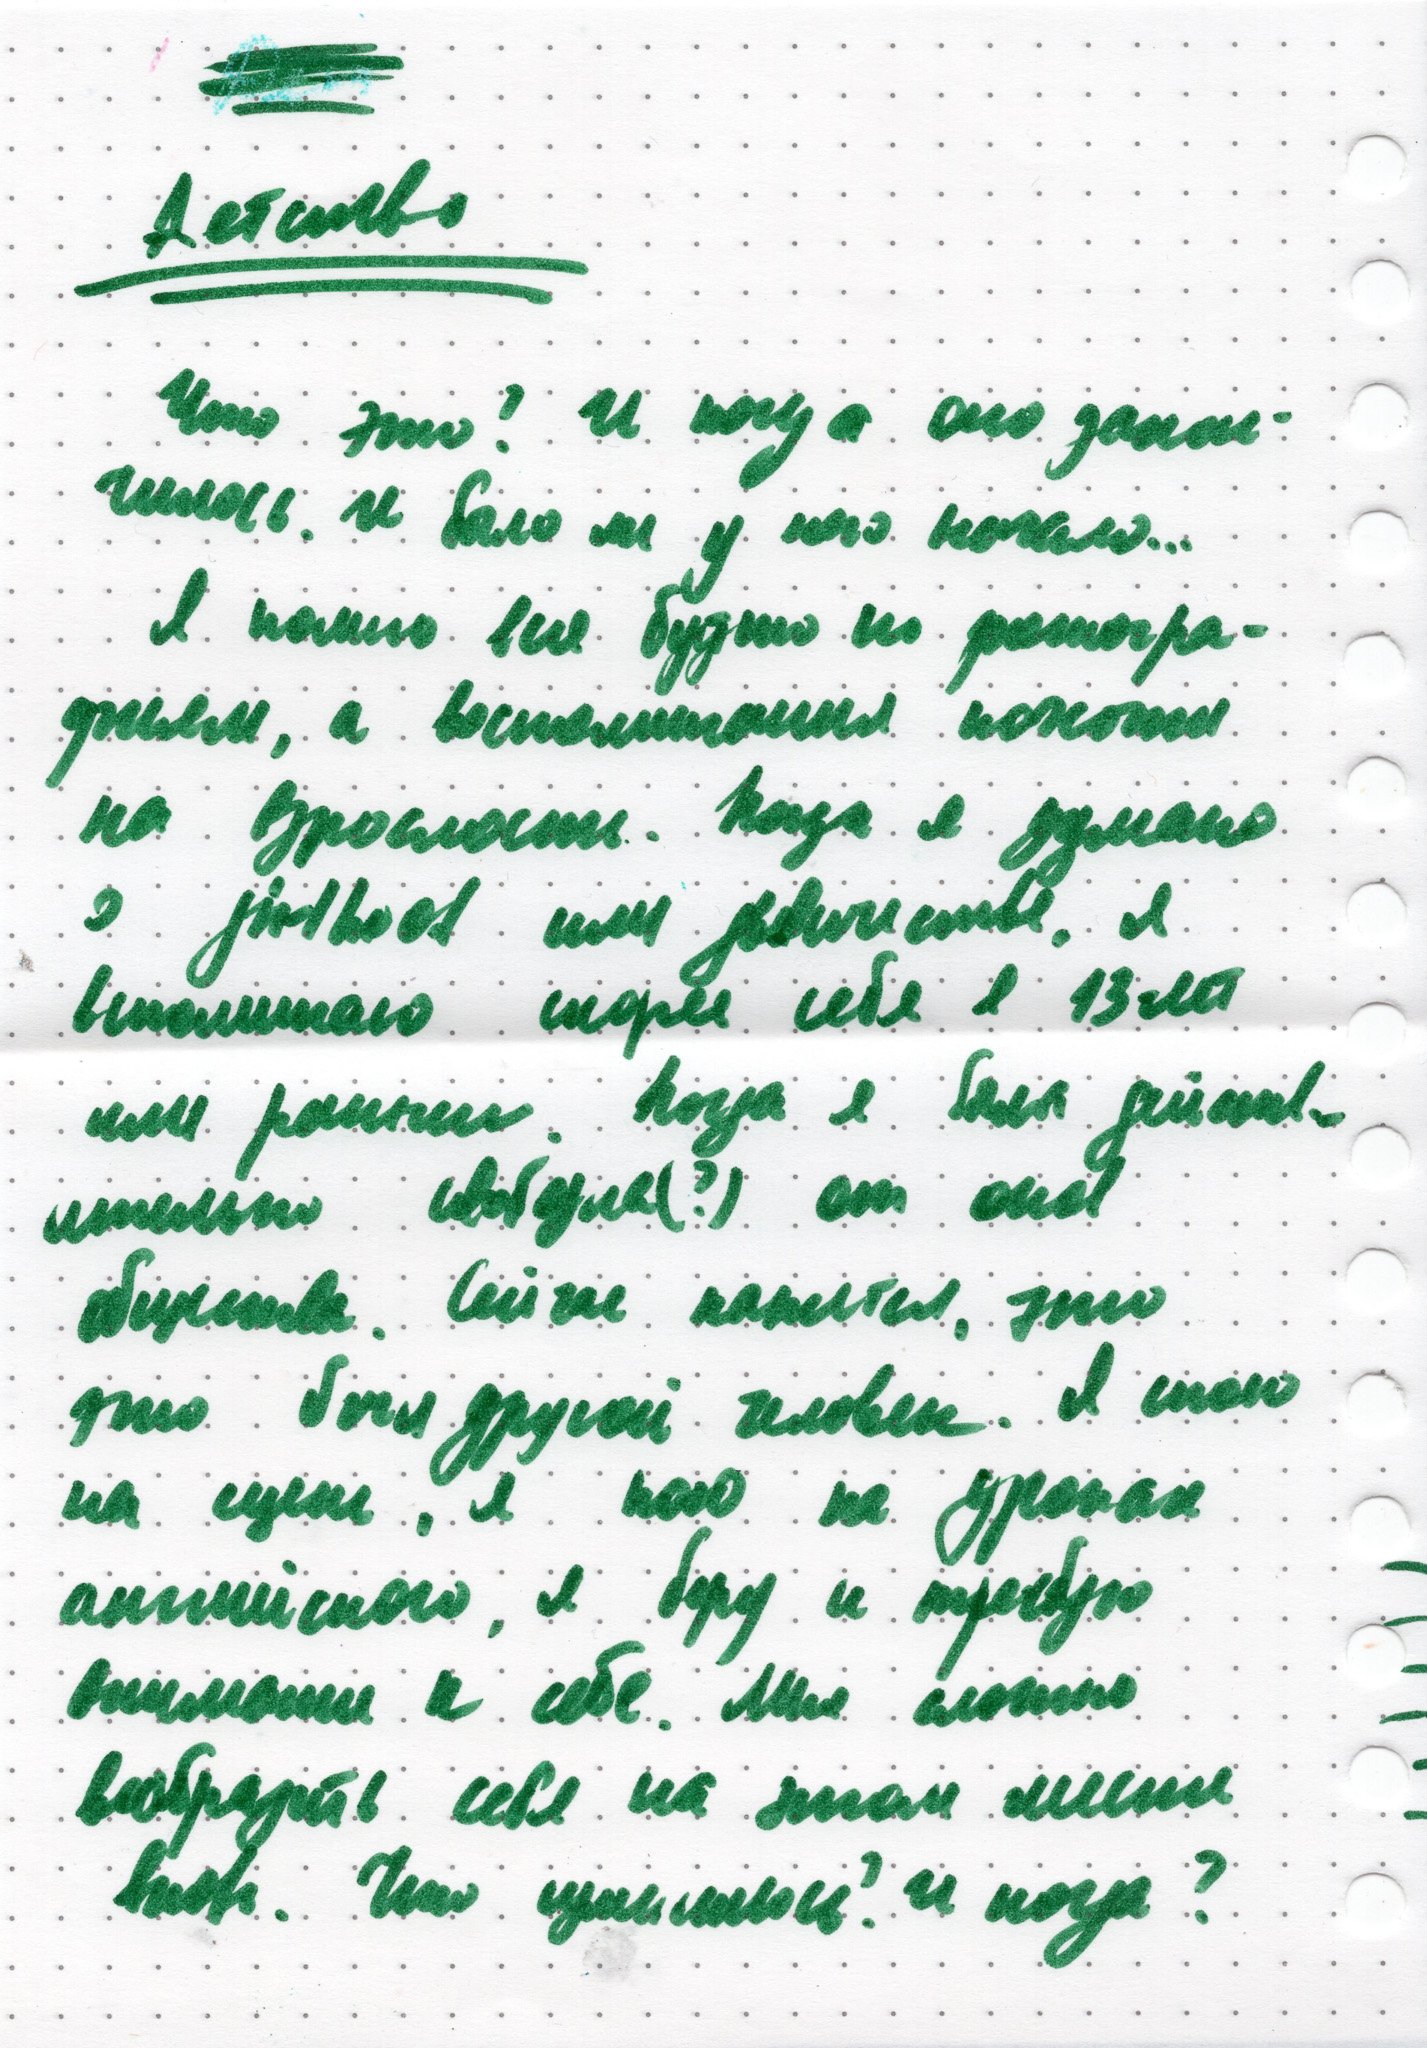 Детство
Что это? И когда оно закон-
чилось. И было ли у него начало...
Я помню все будто по фотогра-
фиям, а воспоминания похожи
на взрослости. Когда я думаю
о girlhood или девичестве, я
вспоминаю скорее себя в 13 лет
или раньше. Когда я была действ-
ительно свободна(?) от оков
общества. Сейчас кажется, это
это был другой человек. Я стою
на сцене, я пою на уроках
английского, я беру и требую
внимание к себе. Мне сложно
вообразить себя на этом месте
вновь. Что изменилось? И когда?